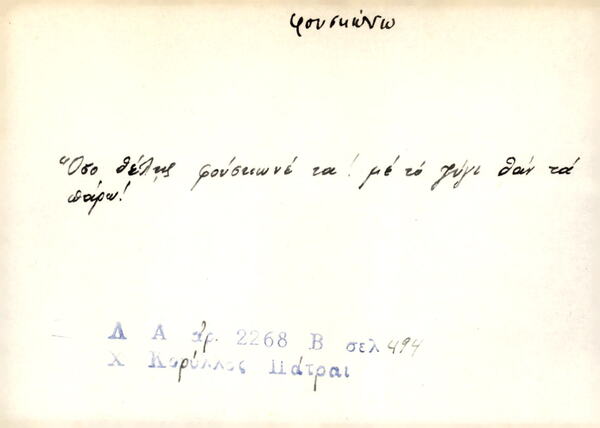 φουσκώνω
Ὅσο θέλῃς φούσκωνέ τα! μέ τό ζύγι θάν τά
πάρω!
Λ Α ἀρ. 2268 Β σελ 494
Χ Κορύλλος Πάτραι